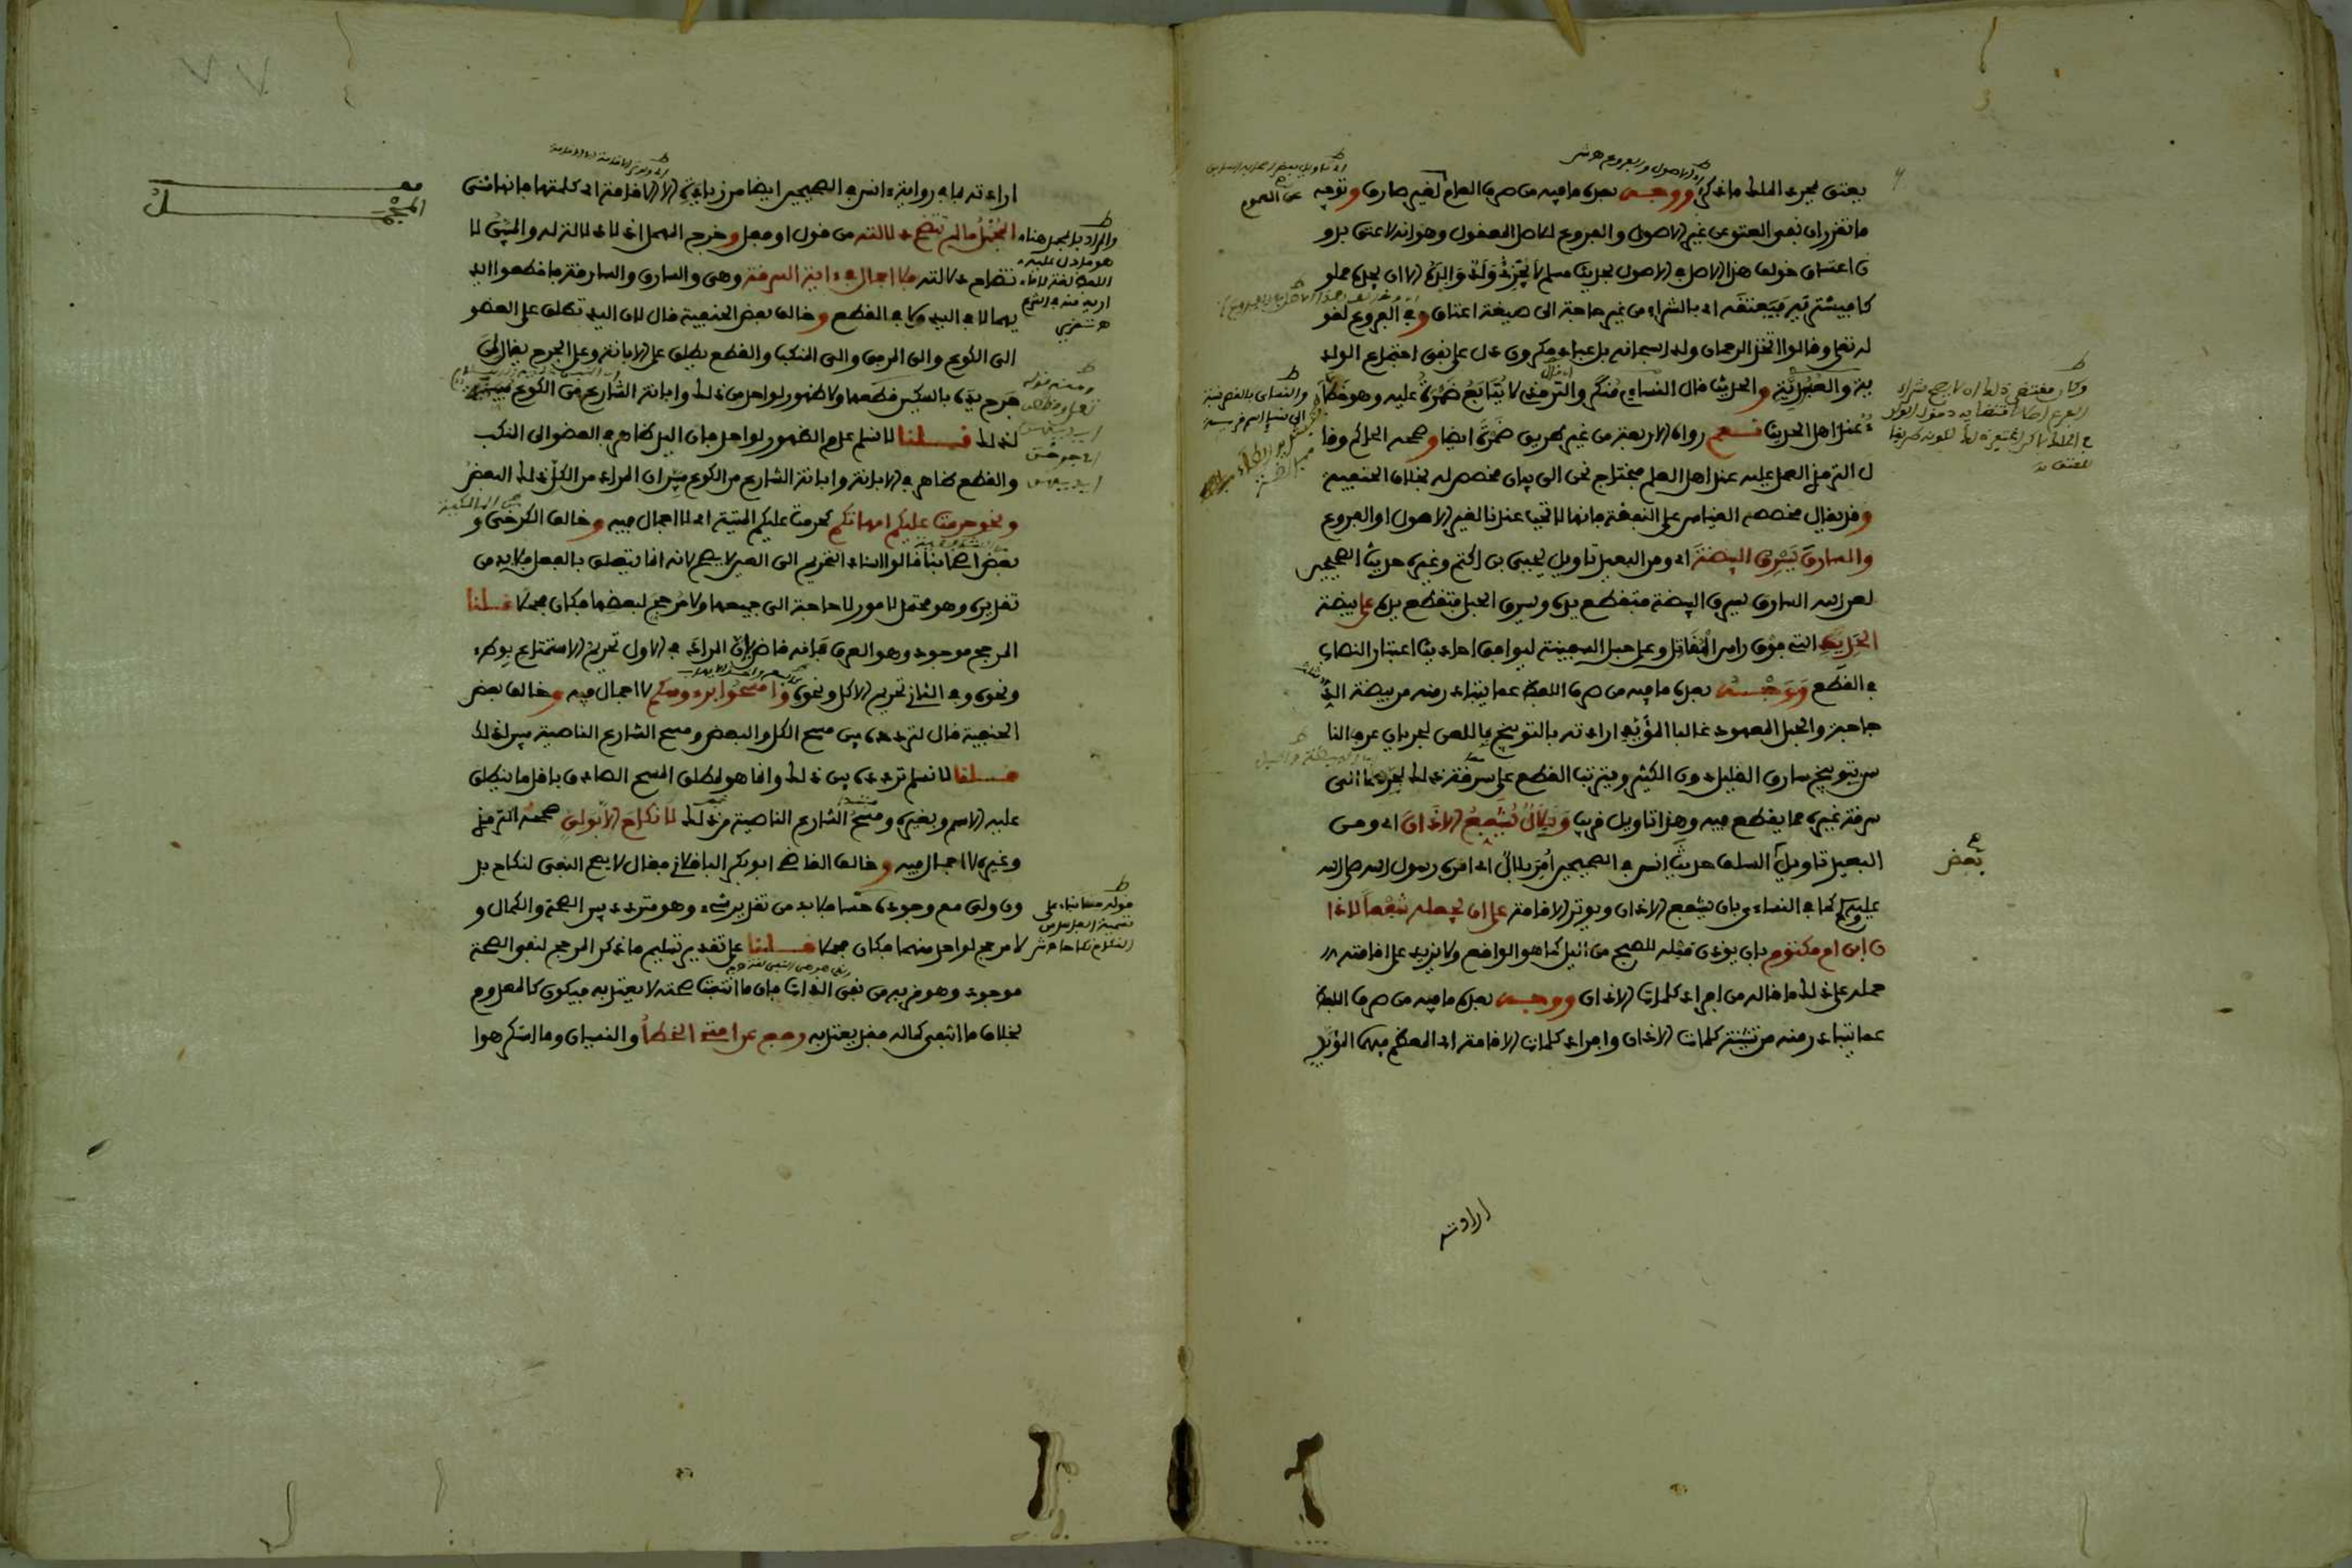 يعتق بمجرد الملك ما ذكر ووجه بعده ما فيه من صرف العام لغير صارف وتوجيه
ما تقرر ان نفى العتق عن غير الاصول والفروع للاصل المعقول وهو انه لا عتق بدو
ن اعتاق خولف هذا الاصل فى الاصول بحديث مسلم لا يجزى ولد والده الا ان يجده مملو
كا فيشتريه فيعتقه اى بالشراء من غير حاجة الى صيغة اعتاق وفى الفروع لقو
له تعالى وقالوا اتخذ الرحمان ولدا سبحانه بل عباد مكرمون دل على نفى اجتماع الولد
ية والعبدية والحديث قال النساءى منكر والترمذى لا يتابع ضمرة عليه وهو خطأ
عند اهل الحديث نعم رواه الاربعة من غير طريق ضمرة ايضا وصححه الحاكم وقا
ل الترمذى العمل عليه عند اهل العلم فيحتاج نحن الى بيان مخصص له بخلاف الحنفية
وقد يقال مخصصه القياس على النفقة فانها لا تجب عندنا لغير الاصول او الفروع
والسارق يسرق البيضة اى ومن البعيد تاويل يحيى بن اكثم وغيره حديث الصحيحين
لعن الله السارق يسرق البيضة فتقطع يده ويسرق الحبل فتقطع يده على بيضة
الحديد التى فوق راس المقاتل وعلى حبل السفينة ليوافق احاديث اعتبار النصاب
فى القطع ووجه بعده ما فيه من صرف اللفظ عما يتبادر منه من بيضة الد
جاجة والحبل المعهود غالبا المؤيد ارادته بالتوبيخ باللعن لجريان عرف النا
س بتوبيخ سارق القليل دون الكثير وترتب القطع على سرقة ذلك لجرها الى
سرقة غيره مما يقطع فيه وهذا تاويل قريب وبلال يشفع الاذان اى ومن
البعيد تاويل بعض السلف حديث انس فى الصحيحين امر بلال اى امره رسول الله صلى الله
عليه وسلم كما فى النساءى بان يشفع الاذان ويوتر الاقامة على ان يجعله شفعا لاذا
ن ابن ام مكتوم بان يوذن قبله للصبح من الليل كما هو الواقع ولا يزيد على اقامته
حمله على ذلك ما قاله من افراد كلمات الاذان ووجه بعده ما فيه من صرف اللفظ
عما يتبادر منه من تثنية كلمات الاذان وافراد كلمات الاقامة اى المعظم فيهما المؤيد
ارادته
ارادته بما فى رواية انس فى الصحيحين ايضا من زيادة الا الاقامة اى كلمتها فانها تثنى
المجمل
المجمل ما لم تتضح دلالته من قول او فعل وخرج المهمل اذ لا دلالة له والمبين لا
تضاح دلالته فلا اجمال فى اية السرقة وهى والسارق والسارقة فاقطعوا ايد
يهما لا فى اليد ولا فى القطع وخالف بعض الحنفية قال لان اليد تطلق على العضو
الى الكوع والى المرفق والى المنكب والقطع يطلق على الابانة وعلى الجرح يقال لمن
جرح يده بالسكين قطعها ولا ظهور لواحد من ذلك وابانة الشارع من الكوع مبينة
لذلك قلنا لا نسلم عدم الظهور لواحد فان اليد ظاهر فى العضو الى المنكب
والقطع ظاهر فى الابانة وابانة الشارع من الكوع مبين ان المراد من الكل ذلك البعض
ونحو حرمت عليكم امهاتكم حرمت عليكم الميتة اى لا اجمال فيه وخالف الكرخى و
بعض اصحابنا قالوا اسناد التحريم الى العين لا يصح لانه انما يتعلق بالفعل فلا بد من
تقديره وهو محتمل لامور لا حاجة الى جميعها ولا مرجح لبعضها فكان مجملا قلنا
المرجح موجود وهو العرف فانه قاض بان المراد فى الاول تحريم الاستمتاع بوطء
ونحوه وفى الثانى تحريم الاكل ونحوه وامسحوا برءوسكم لا اجمال فيه وخالف بعض
الحنفية قال لتردده بين مسح الكل والبعض ومسح الشارع الناصية مبين لذلك
قلنا لا نسلم تردده بين ذلك وانما هو لمطلق المسح الصادق باقل ما ينطلق
عليه الاسم وبغيره ومسح الشارع الناصية من ذلك لا نكاح الا بولى صححه الترمذى
وغيره لا اجمال فيه وخالف القاضى ابو بكر الباقلانى فقال لا يصح النفى لنكاح بد
ون ولى مع وجوده حسا فلا بد من تقدير شىء وهو متردد بين الصحة والكمال و
لا مرجح لواحد منهما فكان مجملا قلنا على تقدير تسليم ما ذكر المرجح لنفى الصحة
موجود وهو قربه من نفى الذات فان ما انتفت صحته لا يعتد به فيكون كالمعدوم
بخلاف ما انتفى كماله فقد يعتد به رفع عن امتى الخطأ والنسيان وما استكرهوا